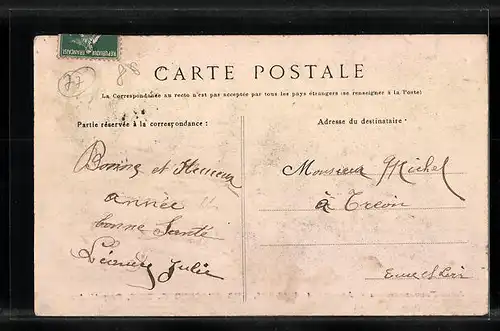 RÉPUBLIQUE FRANÇAISE
77
88
CARTE POSTALE
La Correspondance au recto n'est pas acceptée par tous les pays étrangers (se renseigner à la Poste)
Partie réservée à la correspondance :
Bonne et Heureuse
année
bonne Santé
Julie
Adresse du destinataire
Monsieur Michel
à Treon
Eure et Loir